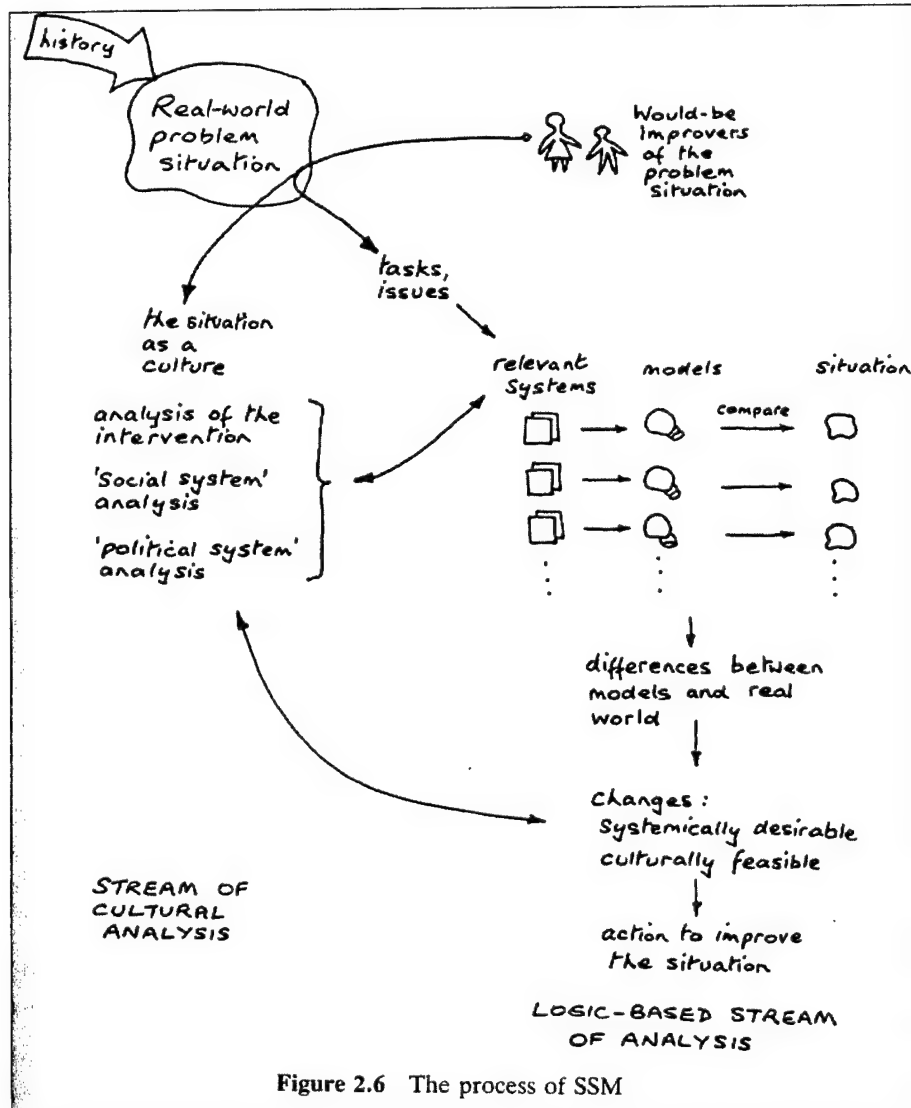 history
Real-world
problem
situation
Would-be
improvers
of the
problem
situation
tasks,
issues
the situation
as a
culture
analysis of the
intervention
'Social system'
analysis
'political system'
analysis
relevant
Systems
models
situation
compare
differences between
models and real
world
Changes:
Systemically desirable
culturally feasible
action to improve
the situation
STREAM OF
CULTURAL
ANALYSIS
LOGIC-BASED STREAM
OF ANALYSIS
Figure 2.6 The process of SSM